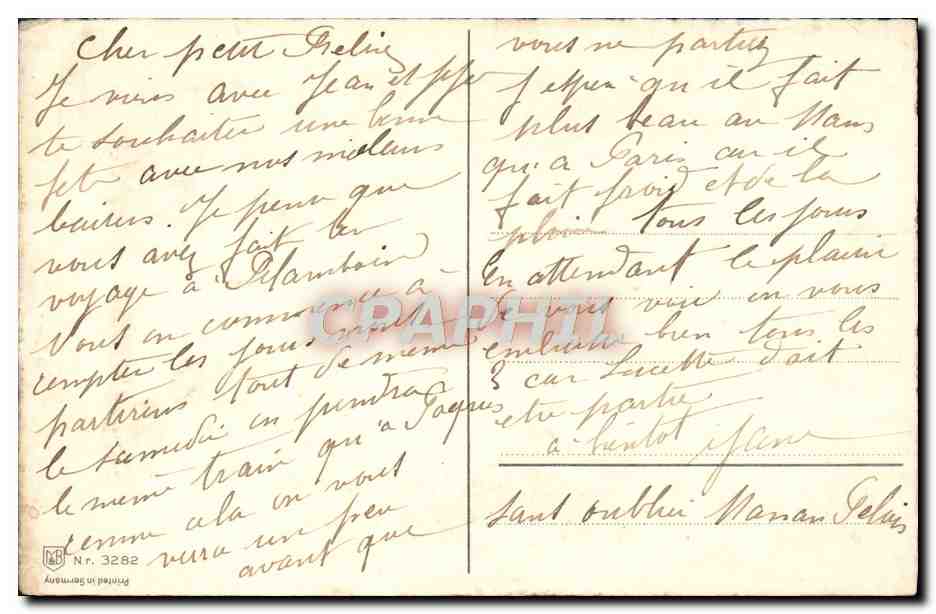 Cher petit
Je viens avec Jean et
te souhaiter une bonne
fete avec nos meileurs
baisers. Je pense que
vous avez fait bon
voyage à
nous on commence à
compter les jours nous
partirons tout de meme
le samedi on prendra
le meme train qu'à Paques
comme cela on vous
verra un peu
avant que
vous ne partiez
J'espere qu'il fait
plus beau au Mans
qu'a Paris car il
fait froid et de la
pluie tous les jours
En attendant le plaisir
de vous voir on vous
embrasse bien tous les
3 car Lucette doit
etre partie
a bientot
sans oublier Maman
CPAPHIL
MB
Nr. 3282
Printed in Germany